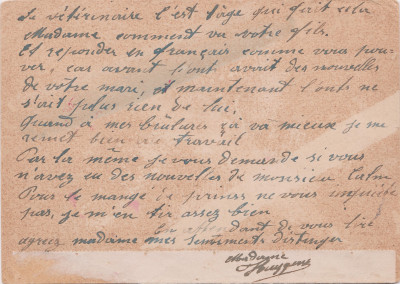 Le vétérinaire c'est l'âge qui fait cela
Madame comment va votre fils.
Et répondez en français comme vous pou-
vez, car avant l'on avait des nouvelles
de votre mari, et maintenant l'on ne
s'ait plus rien de lui.
Quand à mes brûlures çà va mieux je me
remet bien au travail
Par la même je vous demande si vous
n'avez eu des nouvelles de monsieur
Pour le mangé je prinss ne vous inquiété
pas, je m'en tir assez bien
En attendant de vous lire
agreez madame mes sentiments distinger
Madame
Huygens